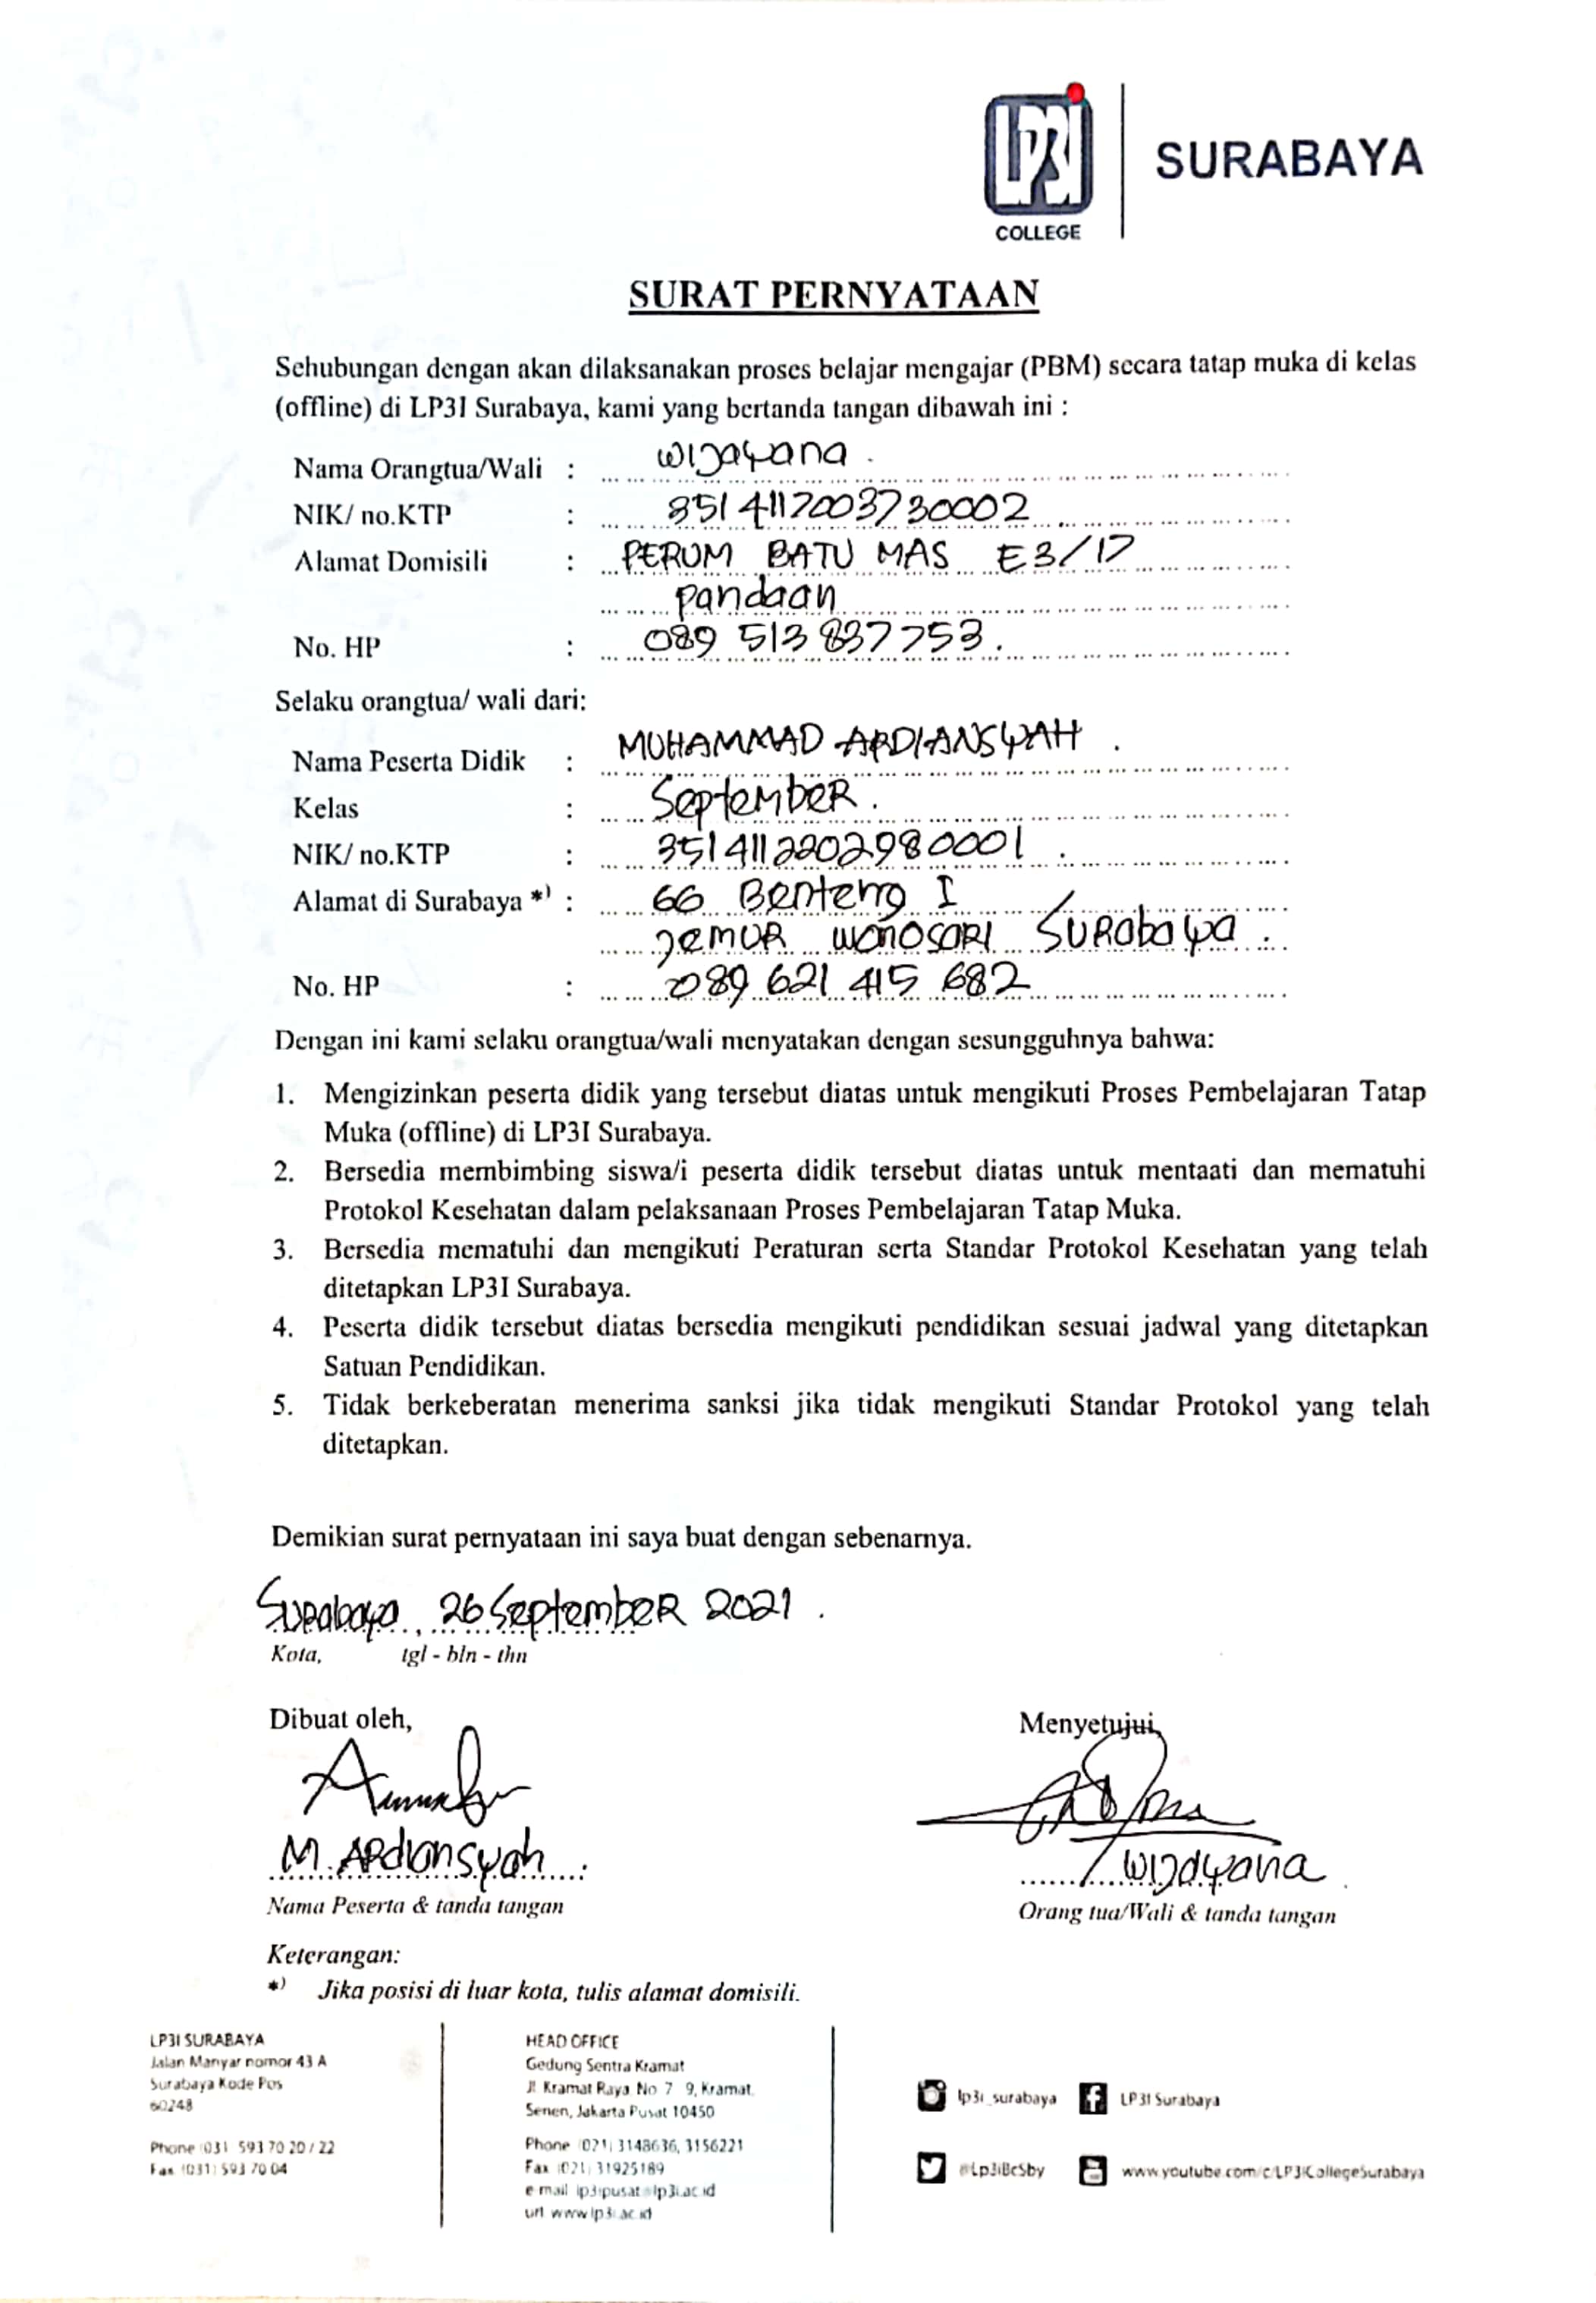 LP3I
COLLEGE
SURABAYA
SURAT PERNYATAAN
Sehubungan dengan akan dilaksanakan proses belajar mengajar (PBM) secara tatap muka di kelas
(offline) di LP3I Surabaya, kami yang bertanda tangan dibawah ini :
Nama Orangtua/Wali : Wijayana .
NIK/ no.KTP : 3514117003730002 .
Alamat Domisili : PERUM BATU MAS E3/17
Pandaan
No. HP : 089 513 837753 .
Selaku orangtua/ wali dari:
Nama Peserta Didik : MUHAMMAD ARDIANSYAH .
Kelas : September .
NIK/ no.KTP : 3514112202980001 .
Alamat di Surabaya *) : 66 Benteng I
Jemur Wonosari Surabaya .
No. HP : 089 621 415 682
Dengan ini kami selaku orangtua/wali menyatakan dengan sesungguhnya bahwa:
1. Mengizinkan peserta didik yang tersebut diatas untuk mengikuti Proses Pembelajaran Tatap
Muka (offline) di LP3I Surabaya.
2. Bersedia membimbing siswa/i peserta didik tersebut diatas untuk mentaati dan mematuhi
Protokol Kesehatan dalam pelaksanaan Proses Pembelajaran Tatap Muka.
3. Bersedia mematuhi dan mengikuti Peraturan serta Standar Protokol Kesehatan yang telah
ditetapkan LP3I Surabaya.
4. Peserta didik tersebut diatas bersedia mengikuti pendidikan sesuai jadwal yang ditetapkan
Satuan Pendidikan.
5. Tidak berkeberatan menerima sanksi jika tidak mengikuti Standar Protokol yang telah
ditetapkan.
Demikian surat pernyataan ini saya buat dengan sebenarnya.
Surabaya, 26 September 2021 .
Kota, tgl - bln - thn
Dibuat oleh,
M. Ardiansyah
Nama Peserta & tanda tangan
Menyetujui,
Wijayana
Orang tua/Wali & tanda tangan
Keterangan:
*) Jika posisi di luar kota, tulis alamat domisili.
LP3I SURABAYA
Jalan Manyar nomor 43 A
Surabaya Kode Pos
60248
Phone (031) 593 70 20 / 22
Fax (031) 593 70 04
HEAD OFFICE
Gedung Sentra Kramat
Jl. Kramat Raya No 7 9, Kramat,
Senen, Jakarta Pusat 10450
Phone (021) 3148636, 3156221
Fax (021) 31925189
e-mail lp3ipusat@lp3i.ac.id
url www.lp3i.ac.id
lp3i_surabaya
LP3I Surabaya
@Lp3iBcSby
www.youtube.com/c/LP3ICollegeSurabaya